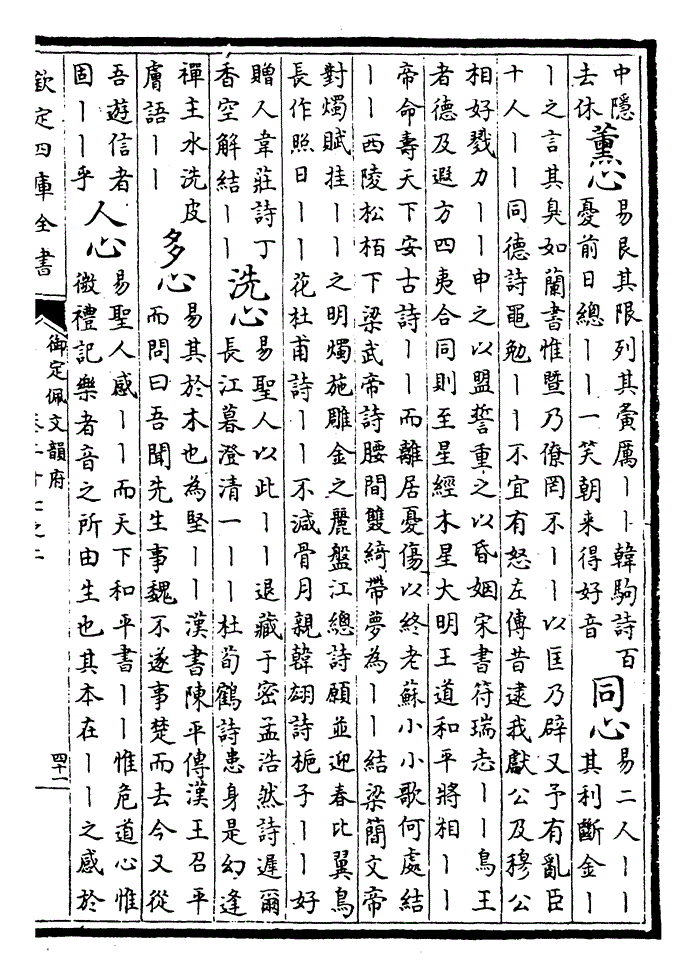 中隱
去休
薰心
易艮其限列其夤厲丨丨韓駒詩百
憂前日總丨丨一笑朝来得好音
同心
易二人丨丨
其利斷金丨
丨之言其臭如蘭書惟暨乃僚罔不丨丨以匡乃辟又予有亂臣
十人丨丨同德詩黽勉丨丨不宜有怒左傳昔逮我獻公及穆公
相好戮力丨丨申之以盟誓重之以昏姻宋書符瑞志丨丨鳥王
者德及遐方四夷合同則至星經木星大明王道和平將相丨丨
帝命壽天下安古詩丨丨而離居憂傷以終老蘇小小歌何處結
丨丨西陵松栢下梁武帝詩腰間雙綺帶夢為丨丨結梁簡文帝
對燭賦挂丨丨之明燭施雕金之麗盤江總詩願並迎春比翼鳥
長作照日丨丨花杜甫詩丨丨不減骨月親韓翃詩梔子丨丨好
贈人韋莊詩丁
香空解結丨丨
洗心
易聖人以此丨丨退藏于密孟浩然詩遲爾
長江暮澄清一丨丨杜荀鶴詩患身是幻逢
禪主水洗皮
膚語丨丨
多心
易其於木也為堅丨丨漢書陳平傳漢王召平
而問曰吾聞先生事魏不遂事楚而去今又從
吾遊信者
固丨丨乎
人心
易聖人感丨丨而天下和平書丨丨惟危道心惟
微禮記樂者音之所由生也其本在丨丨之感於
欽定四庫全書
御定佩文韻府
四十一